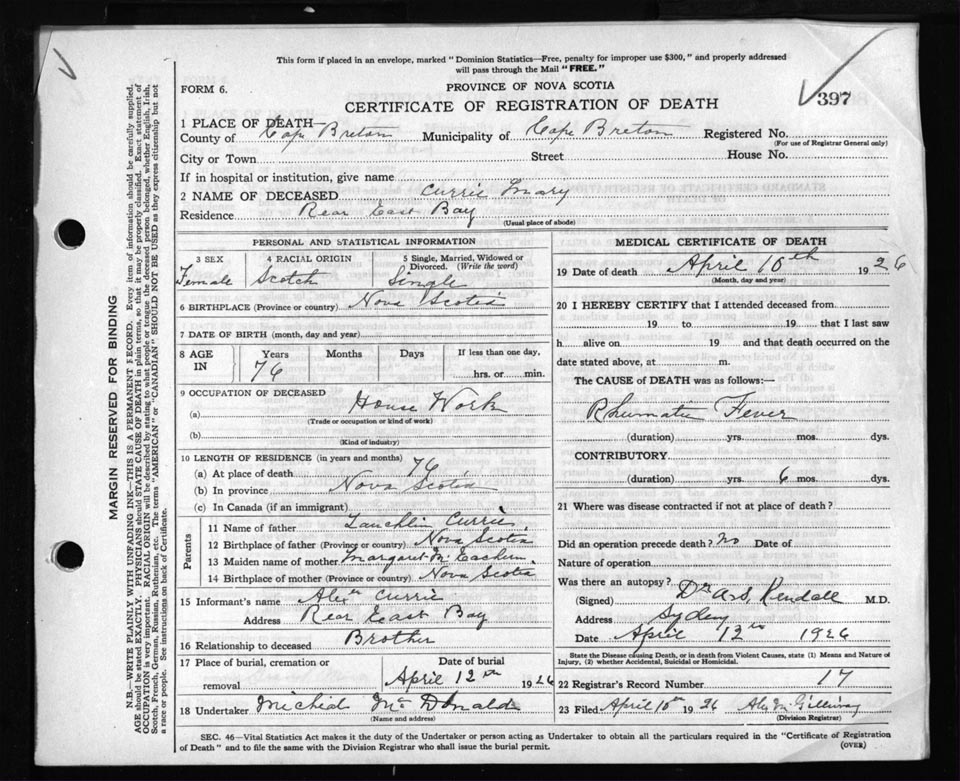 This form if placed in an envelope, marked "Dominion Statistics—Free, penalty for improper use $300," and properly addressed
will pass through the Mail "FREE."
FORM 6.
PROVINCE OF NOVA SCOTIA
CERTIFICATE OF REGISTRATION OF DEATH
397
1 PLACE OF DEATH—
County of Cape Breton Municipality of Cape Breton Registered No.
(For use of Registrar General only)
City or Town Street House No.
If in hospital or institution, give name
2 NAME OF DECEASED Currie Mary
Residence Rear East Bay
(Usual place of abode)
PERSONAL AND STATISTICAL INFORMATION
3 SEX 4 RACIAL ORIGIN 5 Single, Married, Widowed or Divorced. (Write the word)
Female Scotch Single
6 BIRTHPLACE (Province or country) Nova Scotia
7 DATE OF BIRTH (month, day and year)
8 AGE IN Years Months Days If less than one day,
76 hrs. or min.
9 OCCUPATION OF DECEASED
(a) House Work
(Trade or occupation or kind of work)
(b)
(Kind of industry)
10 LENGTH OF RESIDENCE (in years and months)
(a) At place of death 76
(b) In province Nova Scotia
(c) In Canada (if an immigrant)
Parents
11 Name of father Lauchlin Currie
12 Birthplace of father (Province or country) Nova Scotia
13 Maiden name of mother Margaret McEachern
14 Birthplace of mother (Province or country) Nova Scotia
15 Informant's name Alex Currie
Address Rear East Bay
16 Relationship to deceased Brother
17 Place of burial, cremation or removal Date of burial
April 12th 1926
18 Undertaker Michial McDonald
(Name and address)
MEDICAL CERTIFICATE OF DEATH
19 Date of death April 10th 1926
(Month, day and year)
20 I HEREBY CERTIFY that I attended deceased from
19 to 19 that I last saw
h alive on 19 and that death occurred on the
date stated above, at m.
The CAUSE of DEATH was as follows:—
Rhumatic Fever
(duration) yrs. mos. dys.
CONTRIBUTORY
(duration) yrs. 6 mos. dys.
21 Where was disease contracted if not at place of death?
Did an operation precede death? No Date of
Nature of operation
Was there an autopsy?
(Signed) Dr Kendall M.D.
Address Sydney
Date April 12th 1926
State the Disease causing Death, or in death from Violent Causes, state (1) Means and Nature of
Injury, (2) whether Accidental, Suicidal or Homicidal.
22 Registrar's Record Number 17
23 Filed April 10th 1926
(Division Registrar)
SEC. 46—Vital Statistics Act makes it the duty of the Undertaker or person acting as Undertaker to obtain all the particulars required in the "Certificate of Registration
of Death" and to file the same with the Division Registrar who shall issue the burial permit.
(OVER)
MARGIN RESERVED FOR BINDING
N.B.—WRITE PLAINLY WITH UNFADING INK—THIS IS A PERMANENT RECORD. Every item of information should be carefully supplied.
AGE should be stated EXACTLY. PHYSICIANS should STATE CAUSE OF DEATH in plain terms, so that it may be properly classified. Exact statement of
OCCUPATION is very important. RACIAL ORIGIN will be described by stating to what people or tongue the deceased person belonged, whether English, Irish,
Scotch, French, German, Russian, Ruthenian, etc. The terms "AMERICAN" or "CANADIAN" SHOULD NOT BE USED as they express citizenship but not
a race or people. See instructions on back of Certificate.